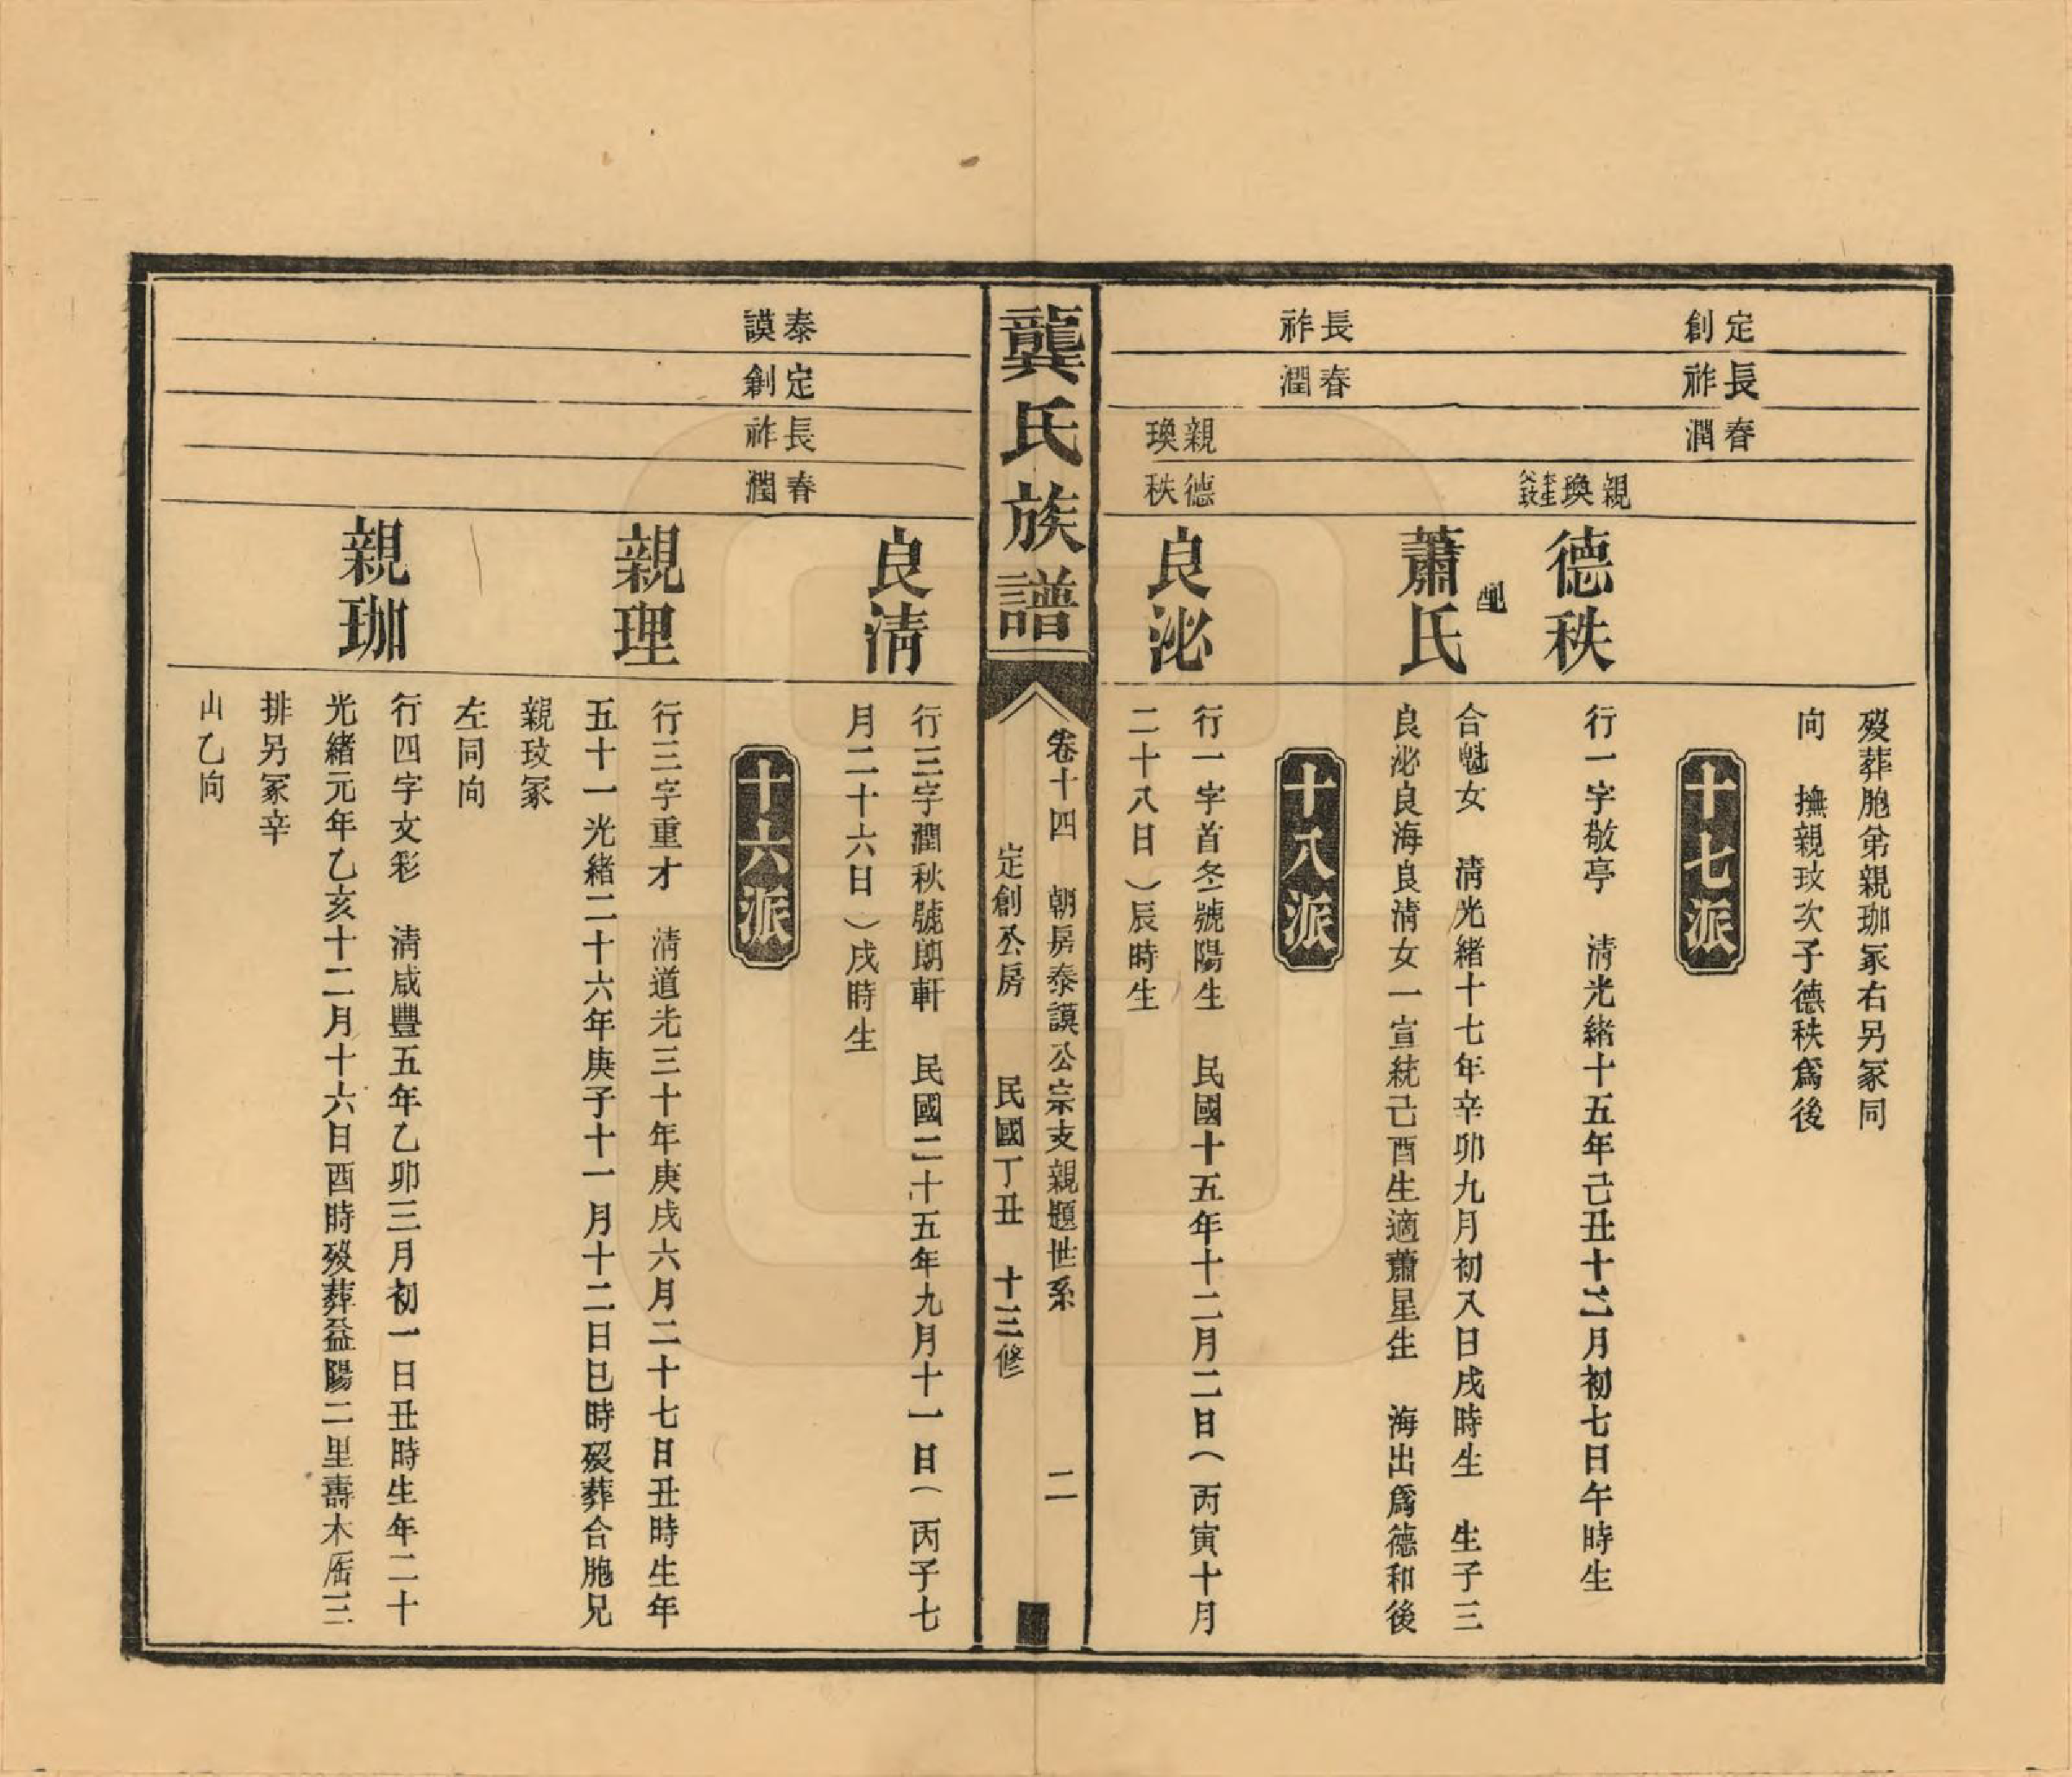 歿葬胞弟親珈冢右另冢同
向　撫親玟次子德秩爲後
定創
長祚
春潤
十七派
親瑍
本生父玟
德秩
行一字敬亭　清光緒十五年己丑十二月初七日午時生
配
蕭氏
合魁女　清光緒十七年辛卯九月初八日戌時生　生子三
良泌良海良清女一宣統己酉生適蕭星生　海出爲德和後
長祚
春潤
十八派
親瑍
德秩
良泌
行一字首冬號陽生　民國十五年十二月二日（丙寅十月
二十八日）辰時生
龔氏族譜
卷十四　朝房泰謨公宗支親題世系　二
定創公房　民國丁丑　十三修
良清
行三字潤秋號朗軒　民國二十五年九月十一日（丙子七
月二十六日）戌時生
泰謨
定創
長祚
春潤
十六派
親理
行三字重才　清道光三十年庚戌六月二十七日丑時生年
五十一光緒二十六年庚子十一月十二日巳時歿葬合胞兄
親玟冢
左同向
親珈
行四字文彩　清咸豐五年乙卯三月初一日丑時生年二十
光緒元年乙亥十二月十六日酉時歿葬益陽二里壽木厝三
排另冢辛
山乙向